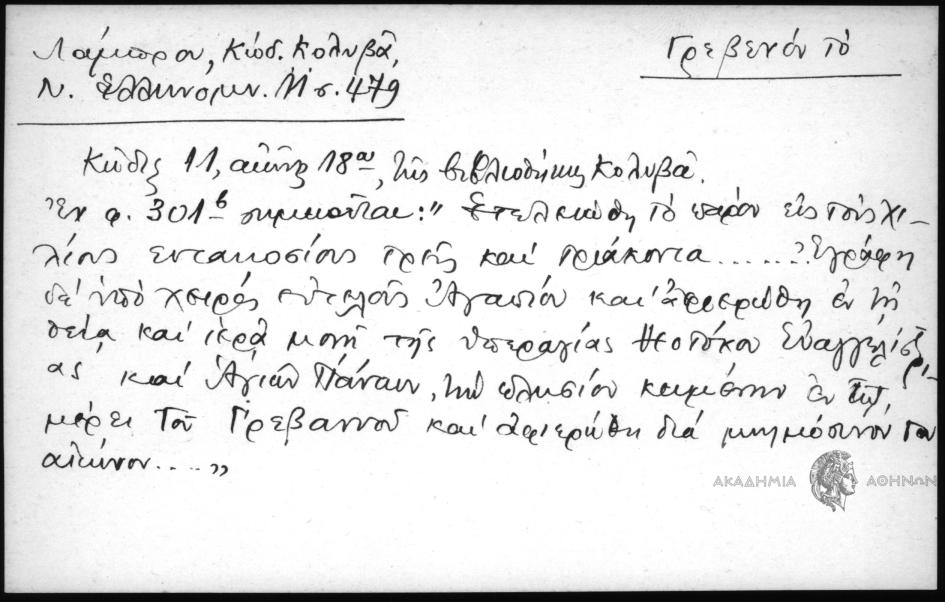 Λάμπρου, Κώδ. Κολυβᾶ,
Ν. Ἑλληνομν. ΙΑ σ. 479
Γρεβενόν τό
Κώδιξ 11, αἰῶνος 18ου, τῆς βιβλιοθήκης Κολυβᾶ.
Ἐν φ. 301β σημειοῦται: "Ετελειώθη τό παρόν εἰς τούς χι-
λίους επτακοσίους τρεῖς και τριάκοντα ....... Ἐγράφη
δέ ὑπό χειρός εὐτελοῦς Ἀγαπίου και ἀφιερώθη ἐν τῇ
θεία και ἱερᾷ μονῇ τῆς ὑπεραγίας Θεοτόκου Εὐαγγελιστρί-
ας και Ἁγίων Πάντων, τήν πλησίον κειμένην ἐν τῷ
μέρει τοῦ Γρεβαννοῦ και ἀφιερώθη διά μνημόσυνόν του
αἰώνιον...."
ΑΚΑΔΗΜΙΑ ΑΘΗΝΩΝ